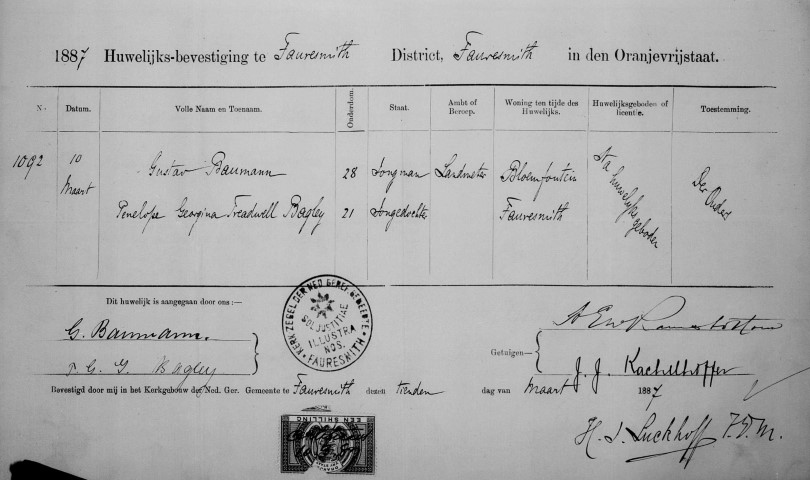 1887 Huwelijks-bevestiging te Fauresmith District, Fauresmith in den Oranjevrijstaat.
N. Datum. Volle Naam en Toenaam. Ouderdom. Staat. Ambt of Beroep. Woning ten tijde des Huwelijks. Huwelijksgeboden of licentie. Toestemming.
1092 10 Maart Gustav Baumann 28 Jongman Landmeter Bloemfontein Na huwelijks geboden Der Ouders
Penelope Georgina Treadwell Bagley 21 Jongedochter Fauresmith
Dit huwelijk is aangegaan door ons:—
G. Baumann.
P. G. G. Bagley
KERKZEGEL DER NED GEREF GEMEENTE
SOL JUSTITIAE
ILLUSTRA
NOS.
FAURESMITH
Getuigen—
J. J. Kachelhoffer
Bevestigd door mij in het Kerkgebouw der Ned. Ger. Gemeente te Fauresmith dezen tienden dag van Maart 1887
H. J. Luckhoff V.D.M.
EEN SHILLING